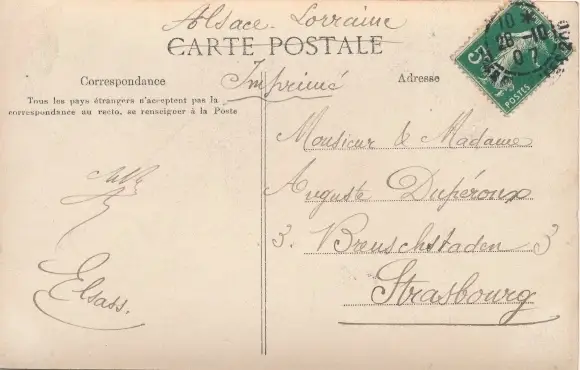 Alsace-Lorraine
CARTE POSTALE
Correspondance
Imprimé
Adresse
Tous les pays étrangers n'acceptent pas la
correspondance au recto, se renseigner à la Poste
Monsieur & Madame
Auguste Dupéroux
3. Breuschstaden 3
Strasbourg
Elsass.
10
28-10
07
5
POSTES